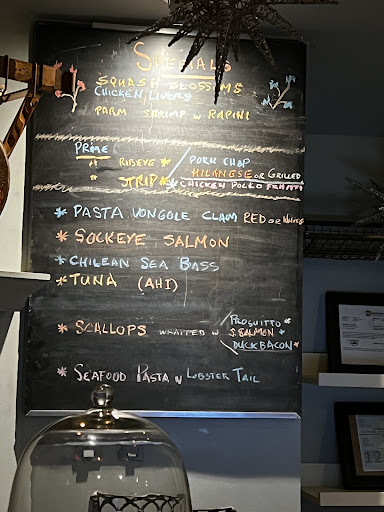 SPECIALS
SQUASH BLOSSOMS
CHICKEN LIVERS
PARM SHRIMP W RAPINI
PRIME
" RIBEYE * / PORK CHOP
MILANESE OR GRILLED
" STRIP * * CHICKEN POLLO FRITTI
* PASTA VONGOLE CLAM RED OR WHITE
* SOCKEYE SALMON
* CHILEAN SEA BASS
* TUNA (AHI)
* SCALLOPS WRAPPED W
PROSUITTO *
S. SALMON *
DUCK BACON *
* SEAFOOD PASTA W LOBSTER TAIL